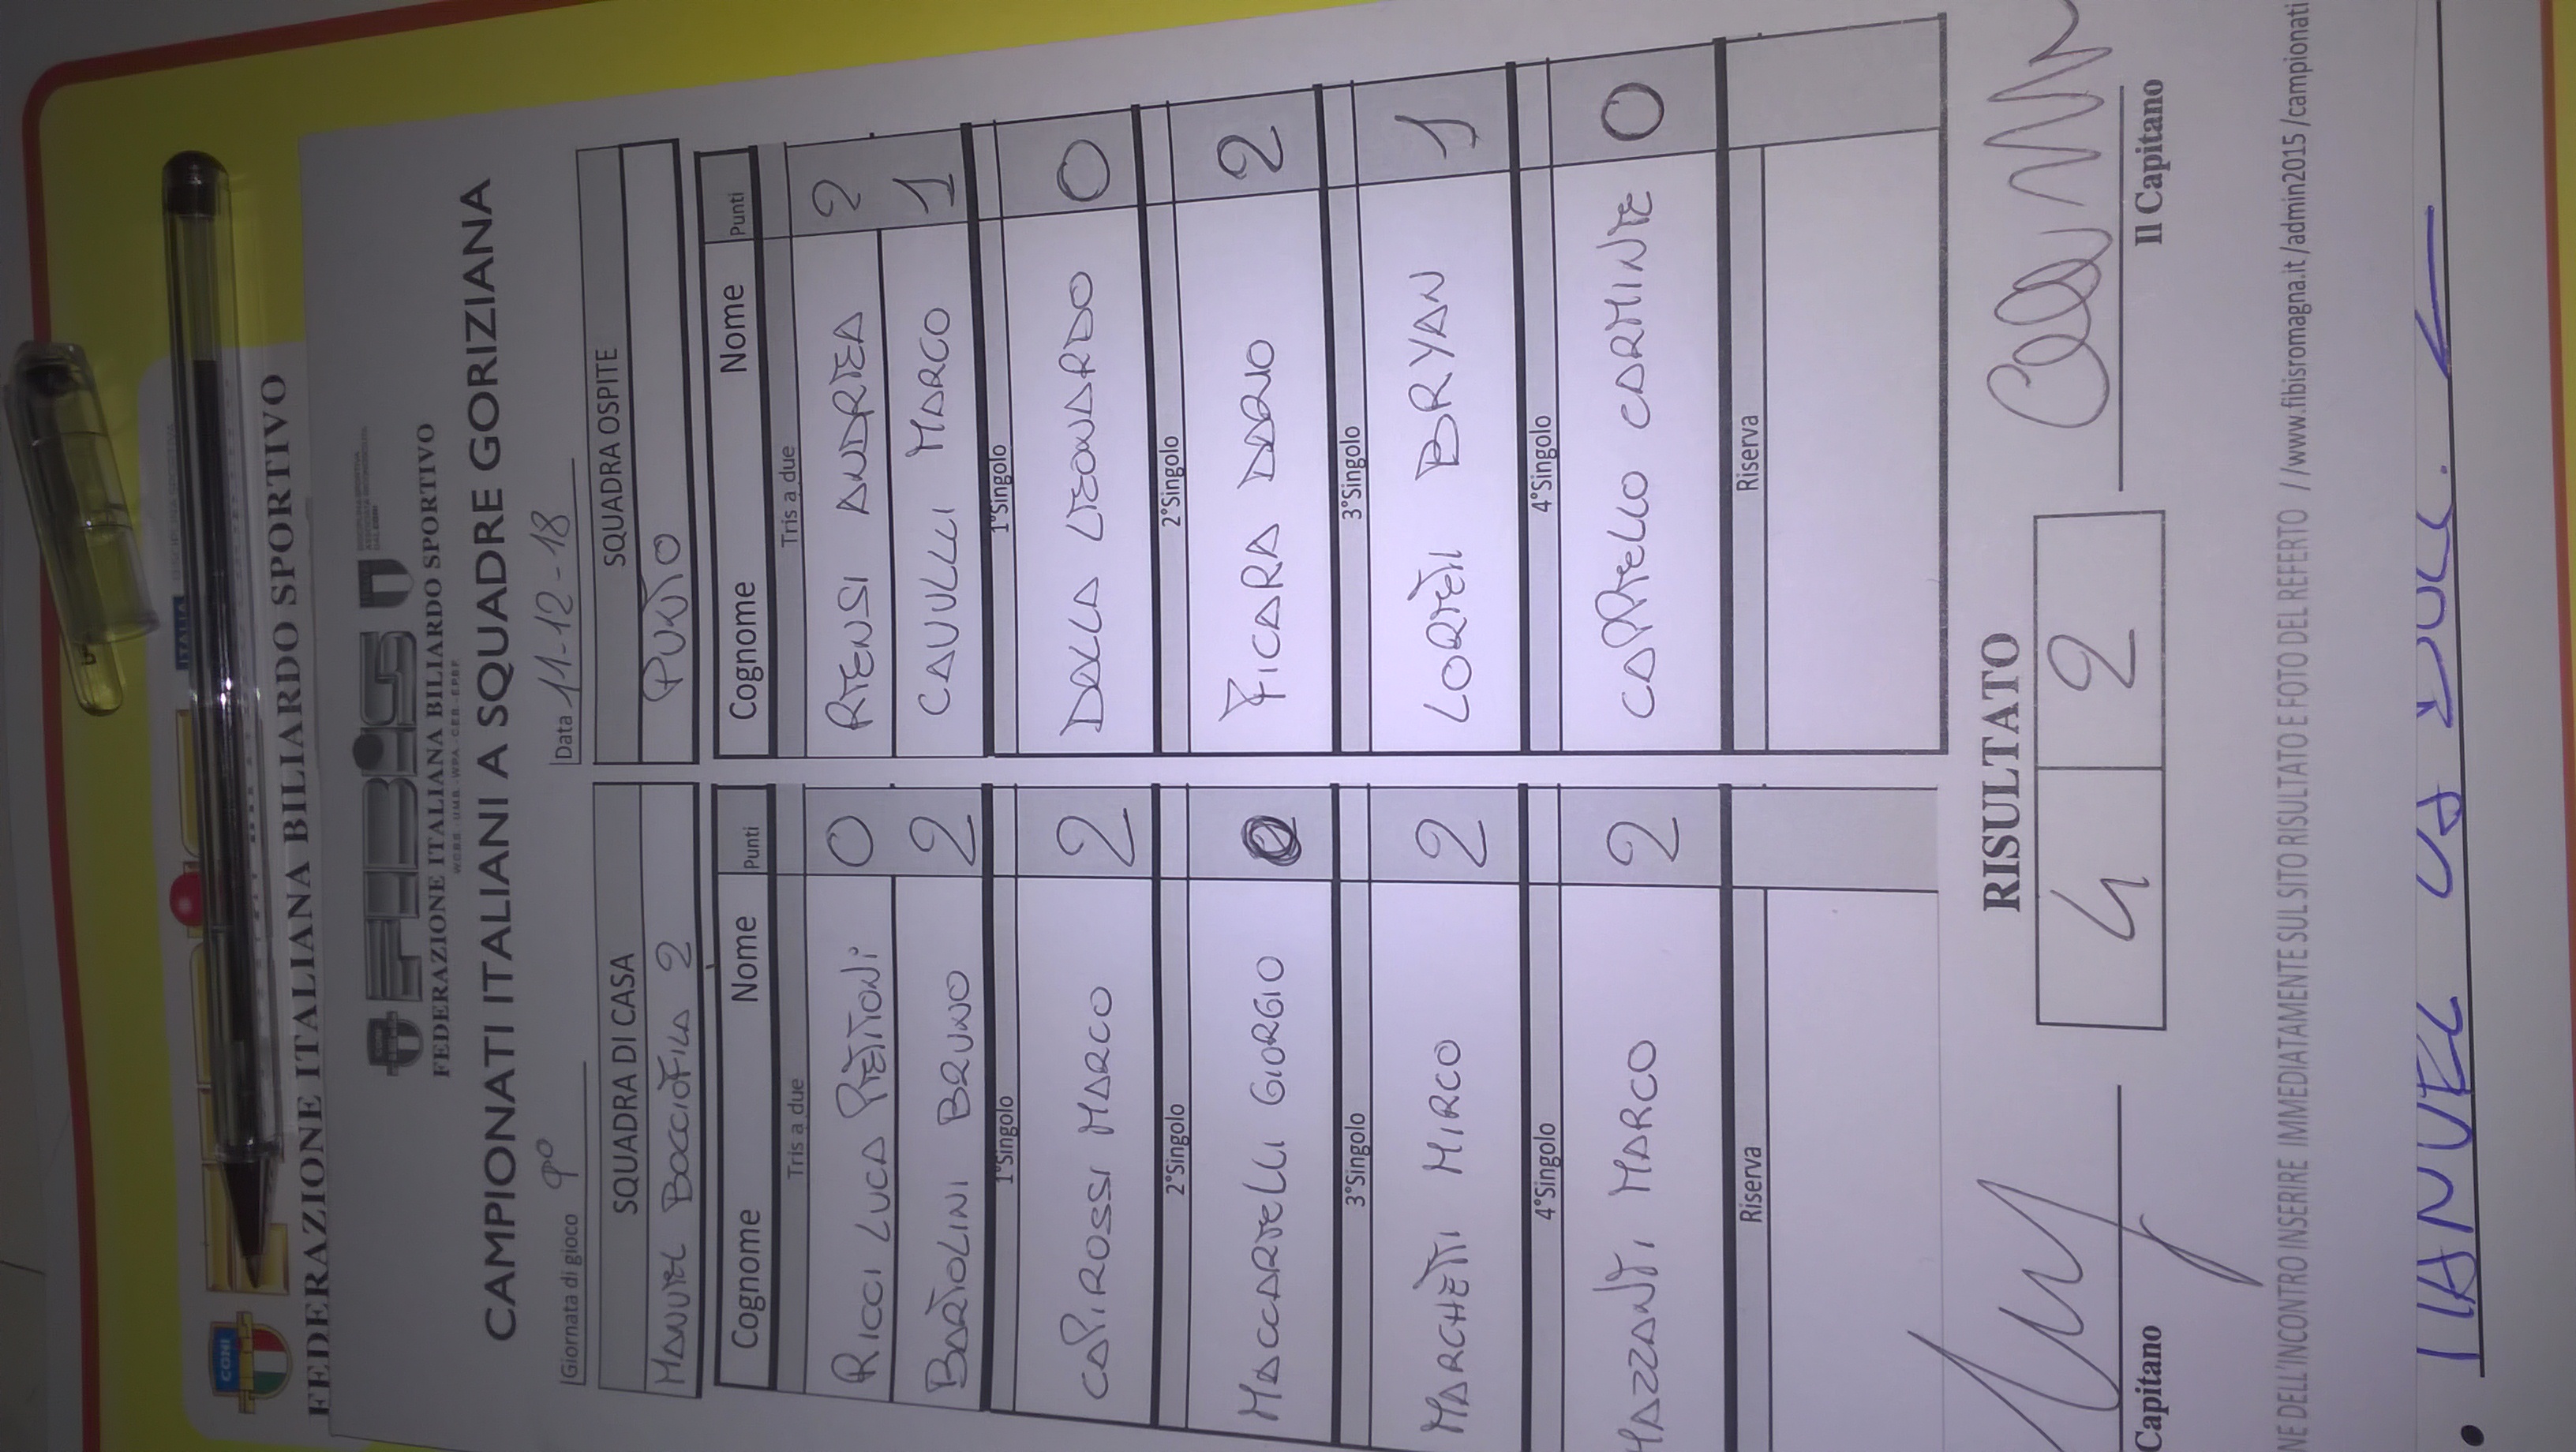 CONI
ITALIA
FEDERAZIONE ITALIANA BILIARDO SPORTIVO
FEBIS
FEDERAZIONE ITALIANA BILIARDO SPORTIVO
W.C.B.S. - U.M.B. - W.P.A. - C.E.B. - E.P.B.F.
CAMPIONATI ITALIANI A SQUADRE GORIZIANA
Giornata di gioco 9° Data 11-12-18
SQUADRA DI CASA SQUADRA OSPITE
MANUEL BOCCIOFILA 2 PUNTO
Cognome Nome Punti Cognome Nome Punti
Tris a due Tris a due
RICCI LUCA PIETTONI 0 RIENSI ANDREA 2
BARTOLINI BRUNO 2 CAVULLI MARCO 1
1°Singolo 1°Singolo
CAPIROSSI MARCO 2 DALLA LEONARDO 0
2°Singolo 2°Singolo
MACCARELLI GIORGIO 0 FICARA DARIO 2
3°Singolo 3°Singolo
MARCHETTI MIRCO 2 LORETI BRYAN 1
4°Singolo 4°Singolo
MAZZANTI MARCO 2 CAPPIELLO CARMINE 0
Riserva Riserva
RISULTATO
4 2
Capitano Il Capitano
NE DELL'INCONTRO INSERIRE IMMEDIATAMENTE SUL SITO RISULTATO E FOTO DEL REFERTO //www.fibisromagna.it/admin2015/campionati